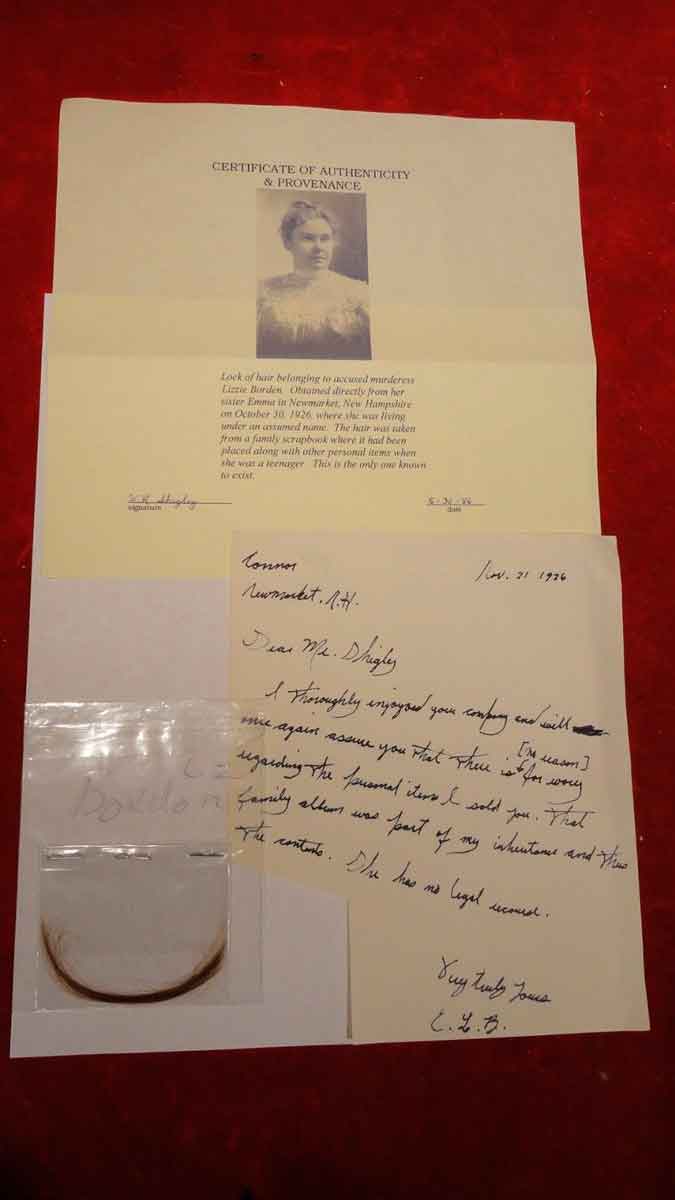 CERTIFICATE OF AUTHENTICITY
& PROVENANCE
Lock of hair belonging to accused murderess
Lizzie Borden. Obtained directly from her
sister Emma in Newmarket, New Hampshire
on October 30, 1926, where she was living
under an assumed name. The hair was taken
from a family scrapbook where it had been
placed along with other personal items when
she was a teenager This is the only one known
to exist.
Shigley
signature
date
Connor
Newmarket, N.H.
Nov. 21 1926
Dear Mr. Shigley
I thoroughly enjoyed your company and will
once again assure you that there is [no reason] for worry
regarding the personal items I sold you. That
family album was part of my inheritance and thus
the contents. She has no legal recourse.
Very truly yours
E. L. B.